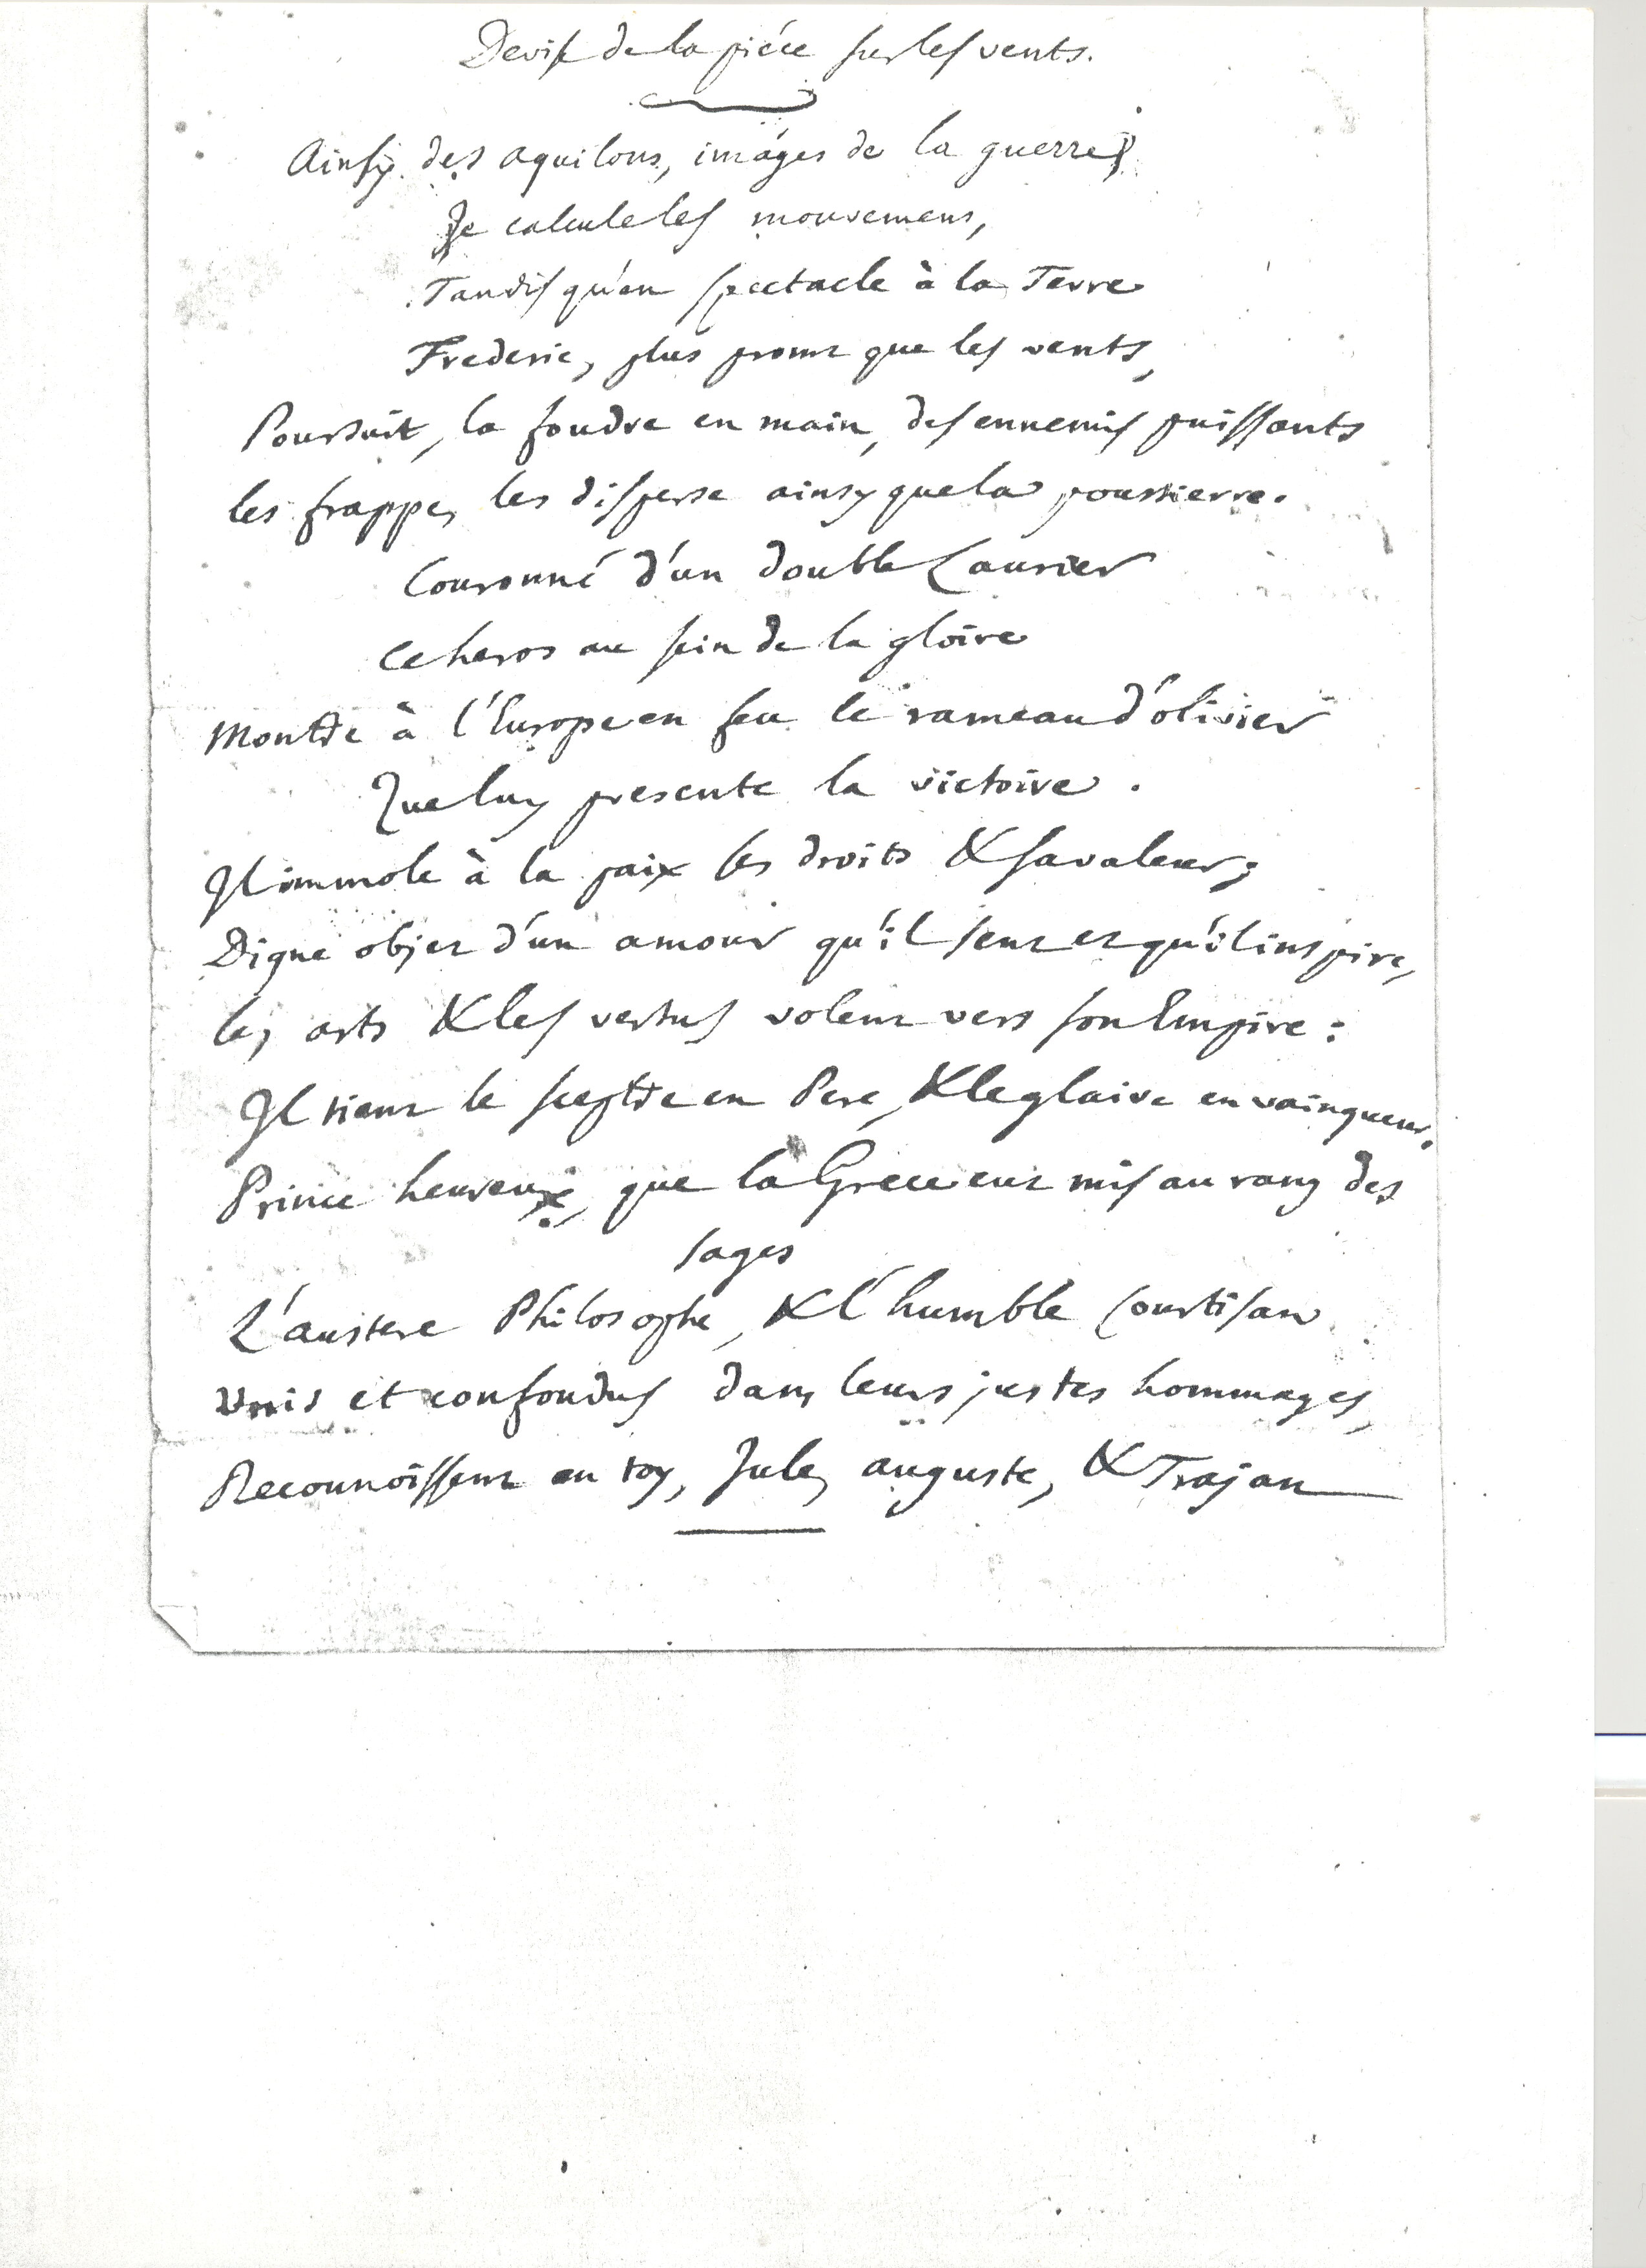 Devise de la piéce sur les vents.
Ainsy des aquilons, images de la guerre,
Je calcule les mouvemens,
Tandis qu'en spectacle à la Terre
Frederic, plus promt que les vents,
Poursuit, la foudre en main, des ennemis puissants
les frappe, les disperse ainsy que la poussierre.
Couronné d'un double Laurier
Ce heros au sein de la gloire
Montre à l'Europe en feu le rameau d'olivier
Que luy presente la victoire.
Il immole à la paix ses droits & sa valeur;
Digne objet d'un amour qu'il sent et qu'il inspire,
les arts & les vertus volent vers son Empire:
Il tient le sceptre en Pere, & le glaive en vainqueur.
Prince heureux, que la Grece eut mis au rang des
sages
L'austere Philosophe, & l'humble Courtisan
Unis et confondus dans leurs justes hommages,
Reconnoissent en toy, Jule, auguste, & Trajan